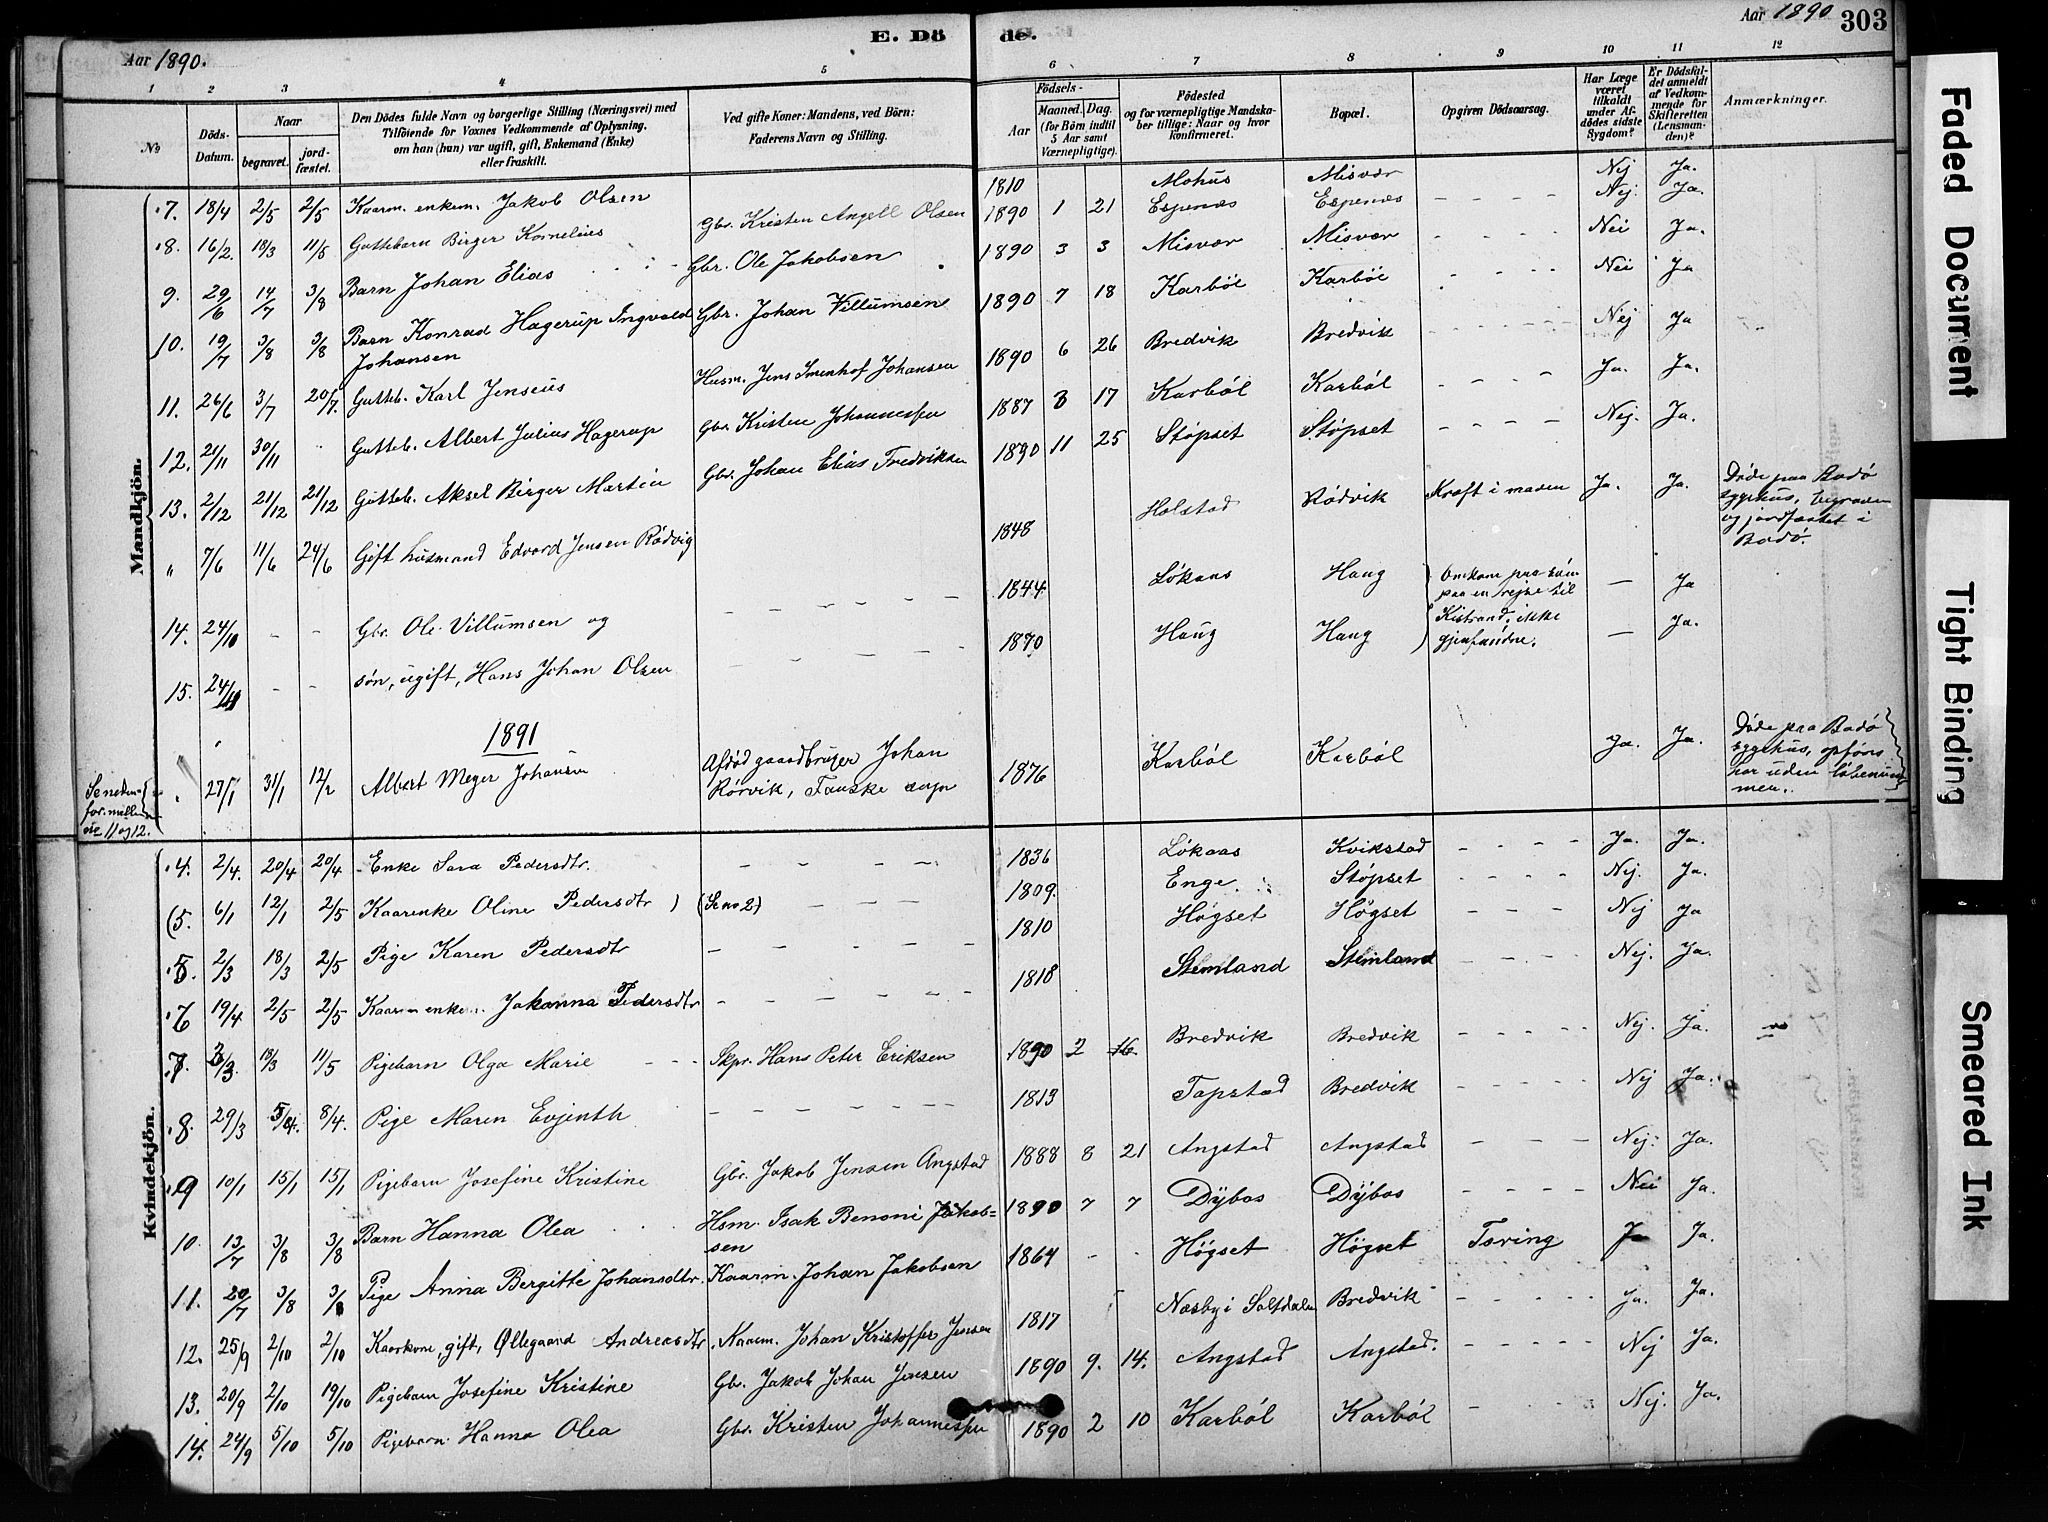 Aar 1890. E. Dö de. Aar 1890 303
1 2 3 4 5 6 7 8 9 10 11 12
№ Döds-Datum. Naar begravet. jordfæstet. Den Dödes fulde Navn og borgerlige Stilling (Næringsvei) med Tilföiende for Voxnes Vedkommende af Oplysning, om han (hun) var ugift, gift, Enkemand (Enke) eller fraskilt. Ved gifte Koner: Mandens, ved Börn: Faderens Navn og Stilling. Födsels- Aar Maaned. Dag. (for Börn indtil 5 Aar samt Værnepligtige). Födested og for værnepligtige Mandskaber tillige: Naar og hvor konfirmeret. Bopæl. Opgiven Dödsaarsag. Har Læge været tilkaldt under Afdödes sidste Sygdom? Er Dödsfaldet anmeldt af Vedkommende for Skifteretten (Lensmanden)? Anmærkninger.
Mandkjön.
7. 18/4 2/5 2/5 Kaarm. enkem. Jakob Olsen 1810 Mohus Misvær Nej Ja.
8. 16/2 18/3 11/5 Guttebarn Birger Kornelius Gbr. Kristen Angell Olsen 1890 1 21 Espenæs Espenæs - - - - Nej. Ja.
9. 29/6 14/7 3/8 Barn Johan Elias Gbr. Ole Jakobsen 1890 3 3 Misvær Misvær - - - - Nei Ja.
10. 19/7 3/8 3/8 Barn Konrad Hagerup Ingvald Johansen Gbr. Johan Villumsen 1890 7 18 Karböl Karböl - - - - Nei Ja
11. 26/6 3/7 20/7. Gutteb. Karl Jenseus Husm. Jens Imenhof Johansen 1890 6 26 Bredvik Bredvik - - - - Nej Ja
12. 21/11 30/11 Gutteb. Albert Julius Hagerup Gbr Kristen Johannessen 1887 3 17 Karböl Karböl - - - - Ja. Ja.
13. 2/12 21/12 21/12 Gutteb. Aksel Birger Martin Gbr. Johan Elias Fredriksen 1890 11 25 Stöpset Stöpset - - - - Nej. Ja.
" 7/6 11/6 24/6 Gift husmand Edvard Jensen Rödvig 1848 Holstad Rödvik Kræft i maven Ja. Ja. Döde paa Bodö sygehus, begraven og jordfæstet i Bodö.
14. 24/10 - - Gbr. Ole Villumsen og - - - - 1844. Lökaas Haug Omkom paa søen paa en rejse til - Ja
15. 24/10 - - søn, ugift, Hans Johan Olsen - - - - 1870 Haug Haug Kistrand, ikke gjenfundne. - Ja.
1891
Se neden for mellem no 11 og 12.
" 27/1 31/1 12/2 Albert Meyer Johansen Afdød gaardbruger Johan Rörvik, Fauske sogn 1876 Karböl Karböl Ja. Ja. Döde paa Bodö sygehus, opføres her uden löbenummer.
Kvindekjön.
4. 2/4. 20/4 20/4 Enke Sara Pedersdtr. - - - - 1836 Lökaas Kvikstad - - - - Ja. Ja.
(5. 6/1 12/1 2/5 Kaarenke Oline Pedersdtr ) (Se no 2) - - - 1809. Enge. Stöpset - - - - Nej. Ja.
5. 2/3 18/3 2/5 Pige Karen Pedersdtr - - - - 1810 Högset Högset - - - - Nej Ja
6 19/4 2/5 2/5 Kaarm enke. Johanna Pedersdtr - - - - 1818 Stemland Stemland - - - - Nej. Ja.
7. 2/3. 18/3 11/5 Pigebarn Olga Marie Skpr. Hans Peter Eriksen 1890 2 16. Bredvik Bredvik - - - - Nej. Ja.
8. 29/3 5/4. 8/4. Pige Maren Evjenth - - - - 1813 Tapstad Bredvik - - - - Nej Ja.
9 10/1 15/1 15/1 Pigebarn Josefine Kristine Gbr. Jakob Jensen Angstad 1888 8 21 Angstad Angstad - - - - Nej. Ja.
10. 13/7 3/8 3/8 Barn Hanna Olea Hsm. Isak Benoni Jakobsen 1890 7 7 Dybos Dybos - - - - Nei Ja.
11. 20/7 3/8 3/8 Pige Anna Bergitte Johansdtr. Kaarm. Johan Jakobsen 1864 - - Högset Högset Tæring Ja Ja.
12. 25/9 2/10 2/10 Kaarkone, gift, Øllegaard Andreasdtr. Kaarm. Johan Kristoffer Jensen 1817 Næsby i Saltdalen Bredvik - - - - Ja. Ja.
13. 20/9 2/10 19/10 Pigebarn Josefine Kristine Gbr. Jakob Johan Jensen 1890 9. 14. Angstad Angstad. - - - - Nej Ja.
14. 24/9 5/10 5/10 Pigebarn. Hanna Olea Gbr. Kristen Johannessen 1890 2 10 Karböl Karböl - - - Nej. Ja.
Faded Document
Tight Binding
Smeared Ink